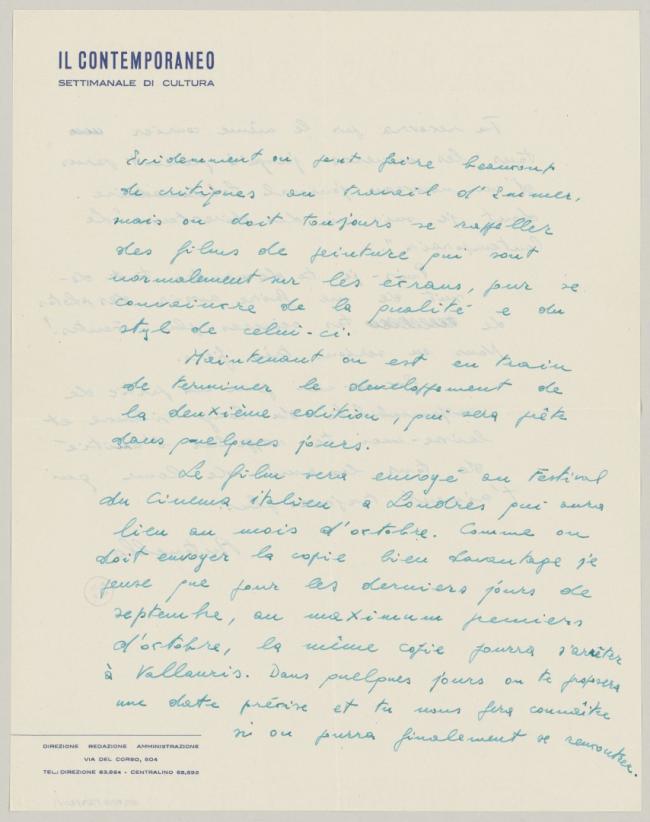 IL CONTEMPORANEO
SETTIMANALE DI CULTURA
Evidemment on peut faire beaucoup
de critiques au travail d'Emmer,
mais on doit toujours se rappeller
des films de peinture qui sont
normalement sur les écrans, pour se
convaincre de la qualité e du
styl de celui-ci.
Maintenant on est en train
de terminer le developpement de
la deuxième edition, qui sera prête
dans quelques jours.
Le film sera envoyé au Festival
du Cinema italien a Londres qui aura
lieu au mois d'octobre. Comme on
doit envoyer la copie bien davantage je
pense que pour les derniers jours de
septembre, au maximum premiers
d'octobre, la même copie pourra s'arrêter
à Vallauris. Dans quelques jours on te proposera
une date précise et tu nous fera connaître
si on purra finalement se rencontrer.
DIREZIONE REDAZIONE AMMINISTRAZIONE
VIA DEL CORSO, 504
TEL.: DIREZIONE 63,864 - CENTRALINO 68,592